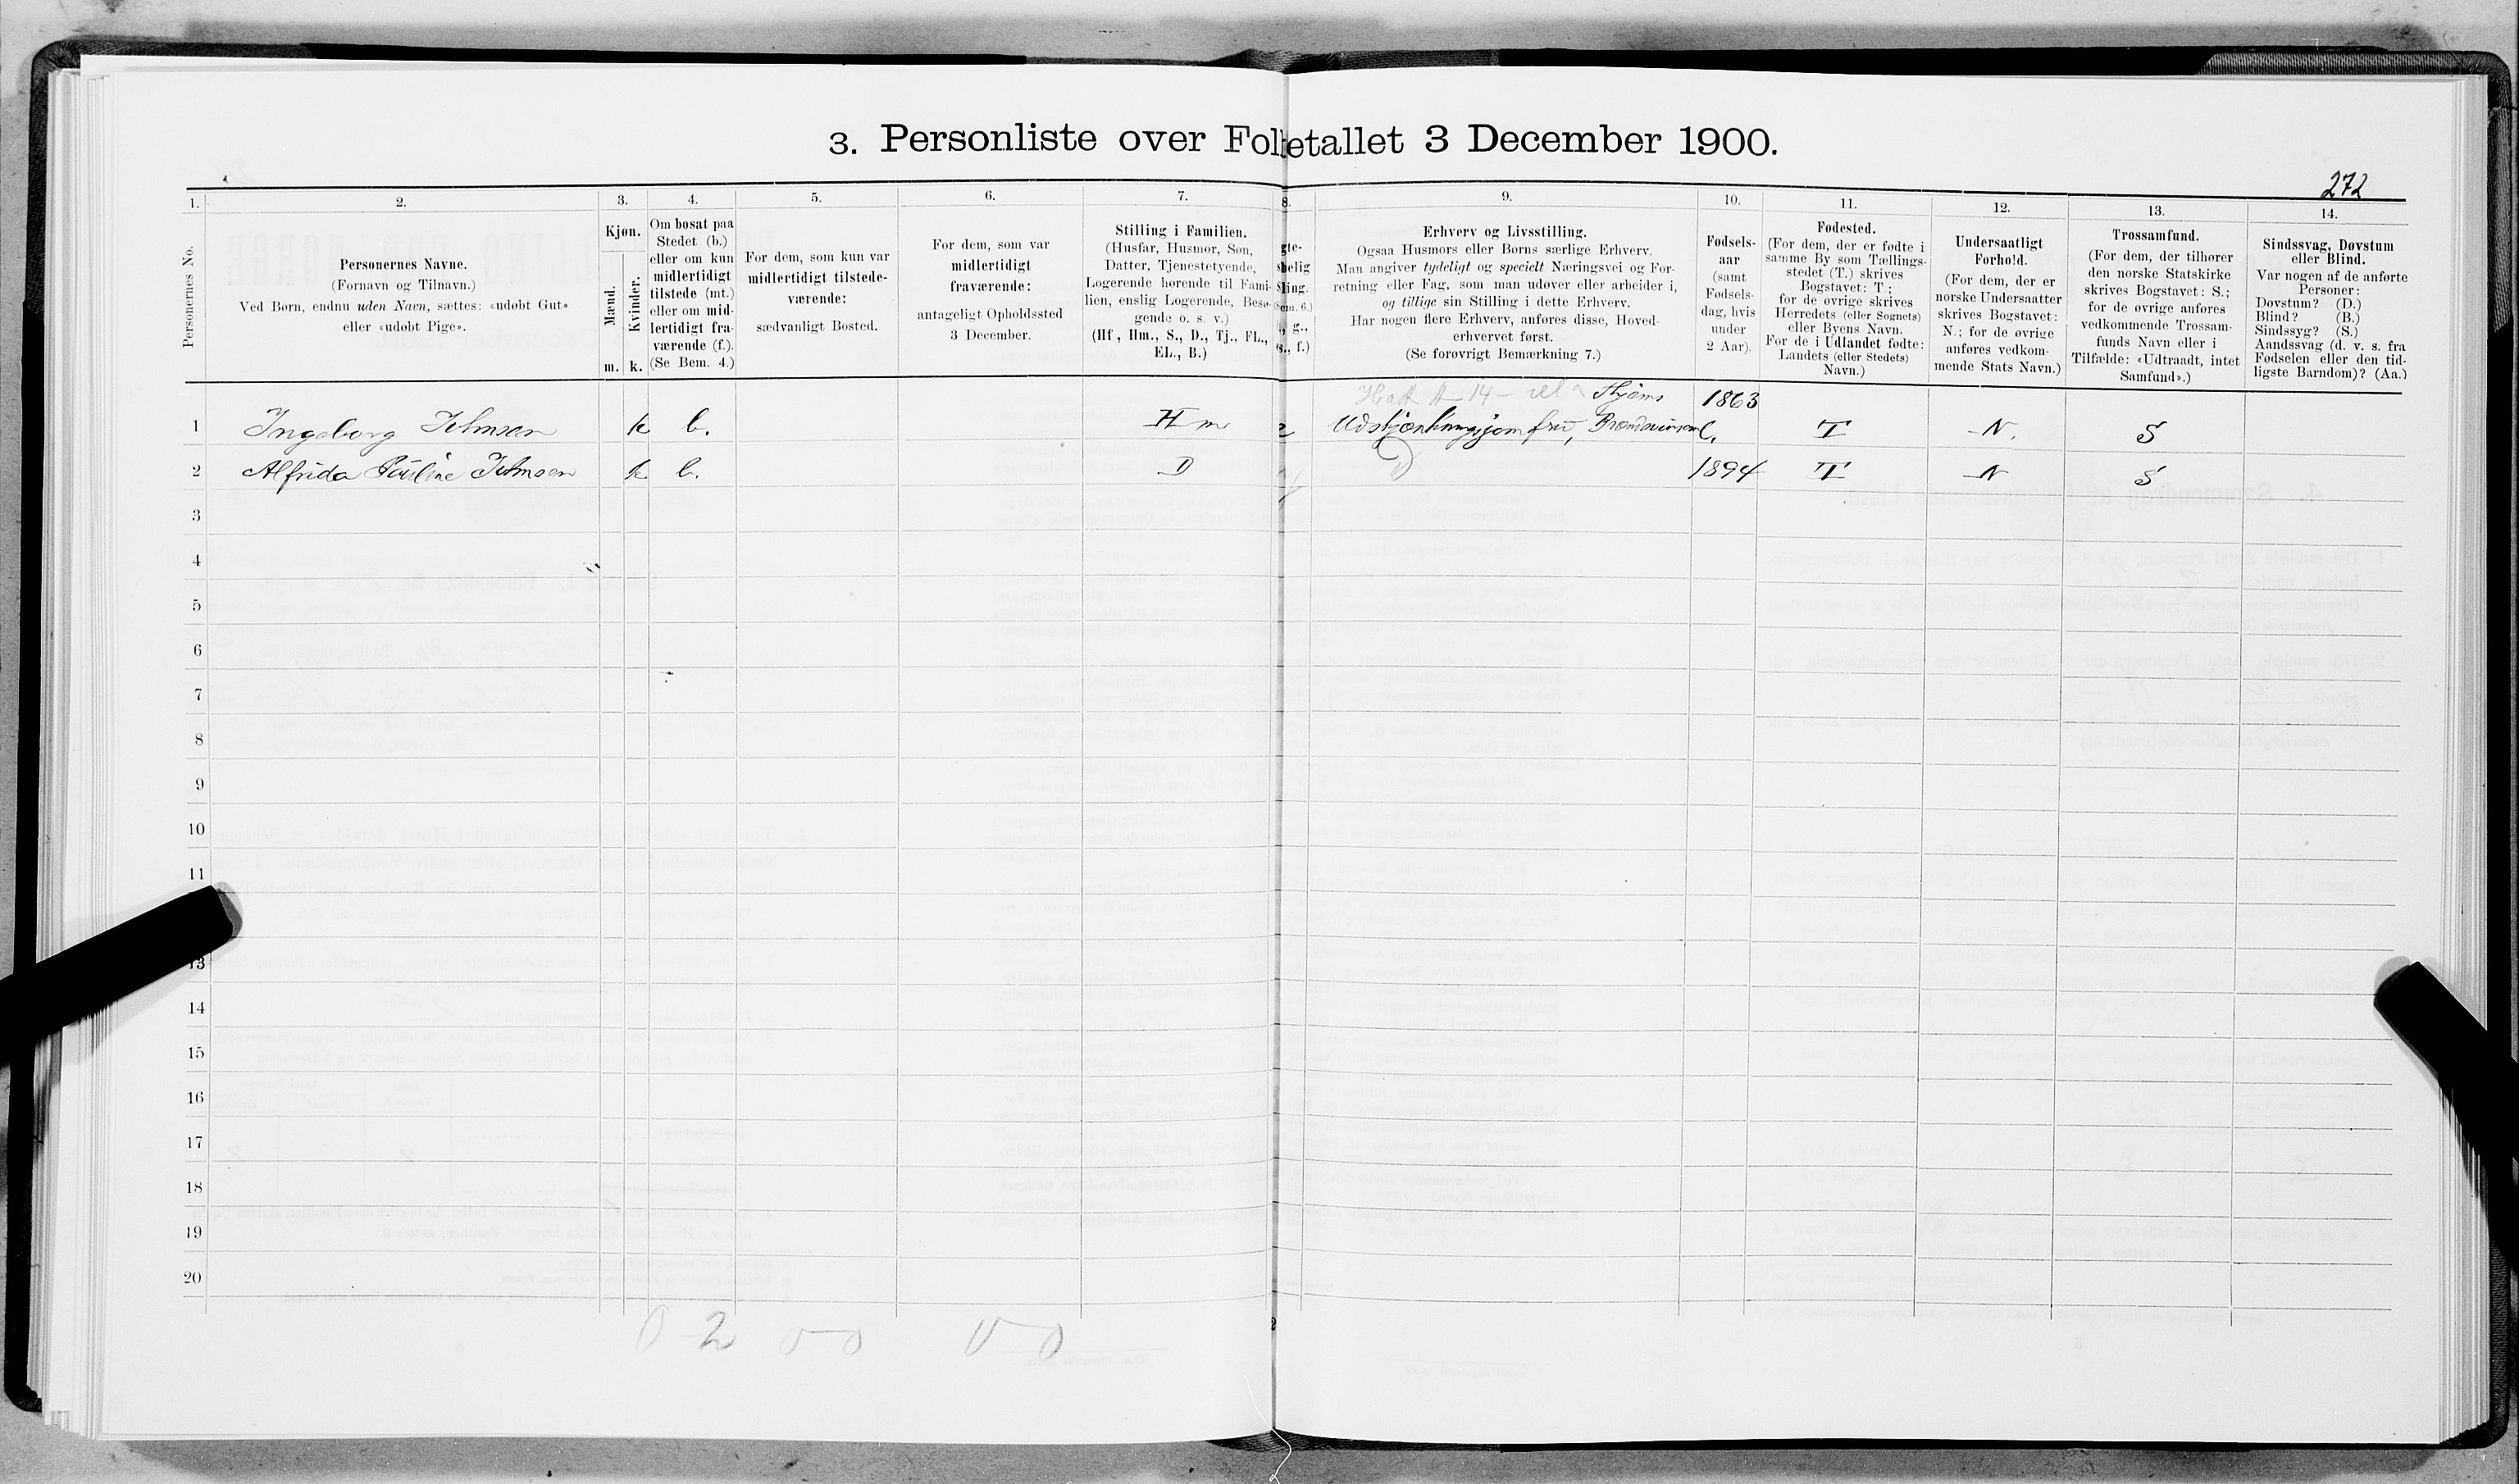 3. Personliste over Folketallet 3 December 1900.
272
1.
2.
3.
4.
5.
6.
7.
8.
9.
10.
11.
12.
13.
14.
Personernes No.
Personernes Navne.
(Fornavn og Tilnavn.)
Ved Børn, endnu uden Navn, sættes: «udøbt Gut»
eller «udøbt Pige».
Kjøn.
Mænd.
Kvinder.
m. k.
Om bosat paa
Stedet (b.)
eller om kun
midlertidigt
tilstede (mt.)
eller om mid-
lertidigt fra-
værende (f.).
(Se Bem. 4.)
For dem, som kun var
midlertidigt tilstede-
værende:
sædvanligt Bosted.
For dem, som var
midlertidigt
fraværende:
antageligt Opholdssted
3 December.
Stilling i Familien.
(Husfar, Husmor, Søn,
Datter, Tjenestetyende,
Logerende hørende til Fami-
lien, enslig Logerende, Besø-
gende o. s. v.)
(Hf, Hm., S., D., Tj., FL.,
EL., B.)
gte-
belig
ling.
em. 6.)
, g.,
s., f.)
Erhverv og Livsstilling.
Ogsaa Husmors eller Børns særlige Erhverv.
Man angiver tydeligt og specielt Næringsvei og For-
retning eller Fag, som man udøver eller arbeider i,
og tillige sin Stilling i dette Erhverv.
Har nogen flere Erhverv, anføres disse, Hoved-
erhvervet først.
(Se forøvrigt Bemærkning 7.)
Fødsels-
aar
(samt
Fødsels-
dag, hvis
under
2 Aar).
Fødested.
(For dem, der er fødte i
samme By som Tællings-
stedet (T.) skrives
Bogstavet: T;
for de øvrige skrives
Herredets (eller Sognets)
eller Byens Navn.
For de i Udlandet fødte:
Landets (eller Stedets)
Navn.)
Undersaatligt
Forhold.
(For dem, der er
norske Undersaatter
skrives Bogstavet:
N.; for de øvrige
anføres vedkom-
mende Stats Navn.)
Trossamfund.
(For dem, der tilhører
den norske Statskirke
skrives Bogstavet: S.;
for de øvrige anføres
vedkommende Trossam-
funds Navn eller i
Tilfælde: «Udtraadt, intet
Samfund».)
Sindssvag, Døvstum
eller Blind.
Var nogen af de anførte
Personer:
Døvstum? (D.)
Blind? (B.)
Sindssyg? (S.)
Aandssvag (d. v. s. fra
Fødselen eller den tid-
ligste Barndom)? (Aa.)
1 Ingeborg Johnsen k b. Hm Udskjænkningsjomfru, 1863 T N. S
2 Alfrida Pauline Johnsen k b. D 1894 T N S
3
4
5
6
7
8
9
10
11
13
14
15
16
17
18
19
20
0 2 0 0 0 0